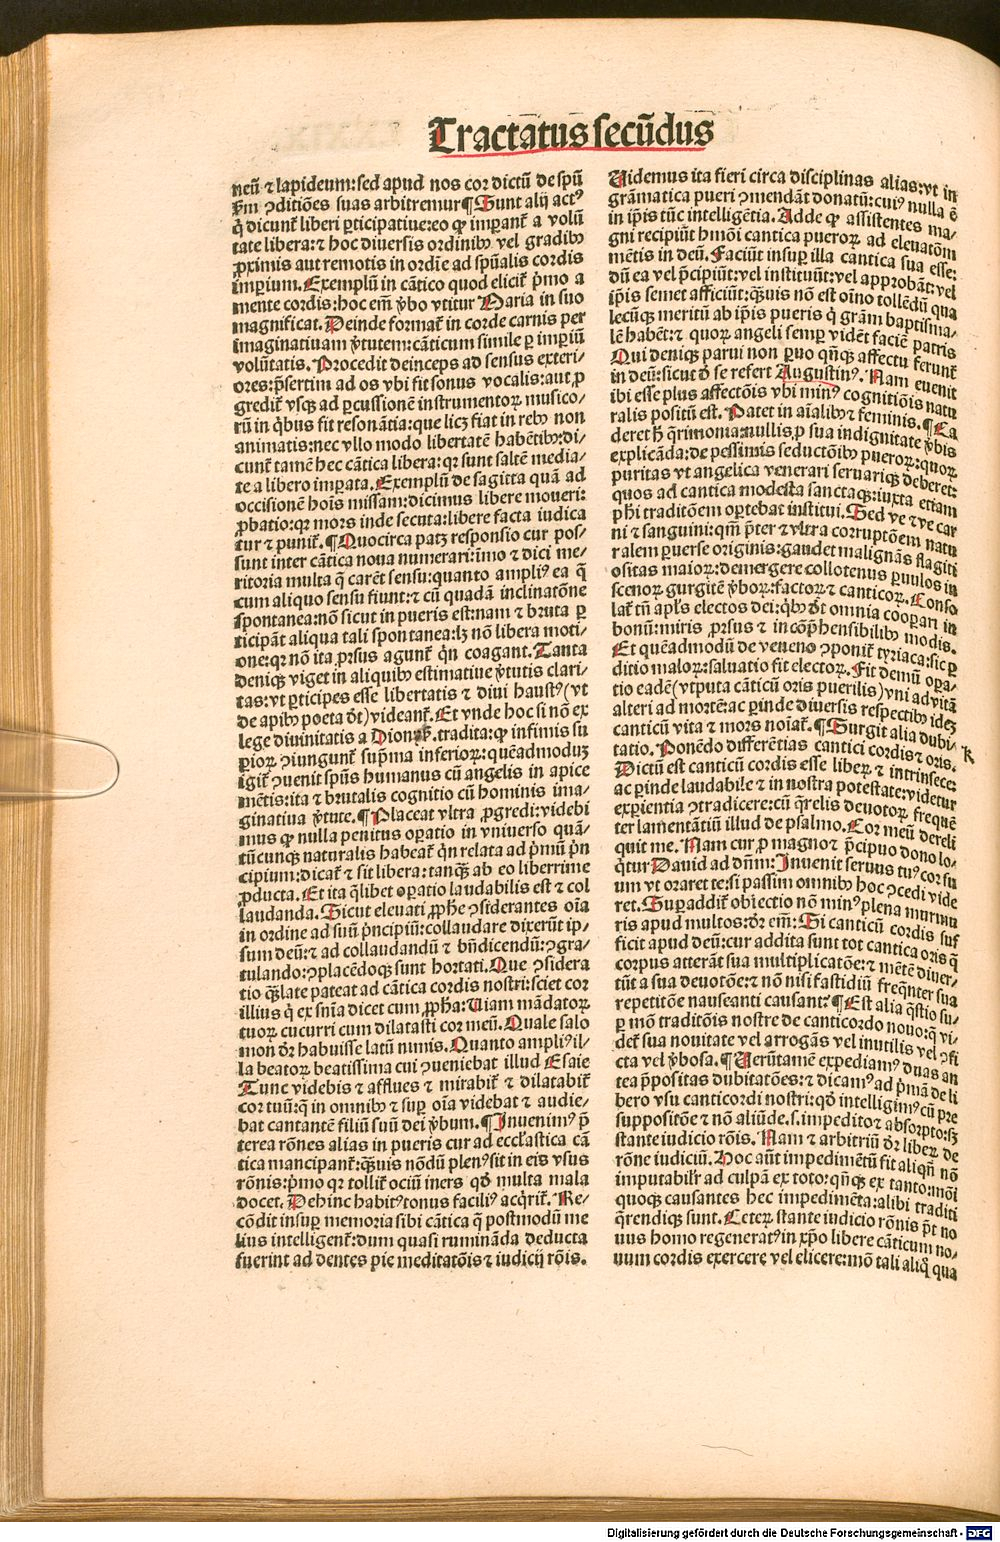 Tractatus secūdus
neū ⁊ lapideum: sed apud nos cor dictū de spū
ꝑm ꝯditiōes suas arbitremur ¶ Sunt alij actꝰ
q̇ dicunt̃ liberi ꝑticipatiue: eo ꝙ imꝑant̃ a volū
tate libera: ⁊ hoc diuersis ordinibꝫ vel gradibꝫ
ꝓximis aut remotis in ordīe ad spūalis cordis
imꝑium. Exemplū in cātico quod elicit̃ p̄mo a
mente cordis: hoc em̄ v̄bo vtitur Maria in suo
magnificat. Deinde format̃ in corde carnis per
imaginatiuam v̄tutem: cāticum simile ꝑ imꝑiū
volūtatis. Procedit deinceps ad sensus exteri/
ores: p̄sertim ad os vbi fit sonus vocalis: aut ꝓ
gredit̃ vsqꝫ ad ꝑcussionē instrumentoꝝ musico/
rū in q̇bus fit resonātia: que licꝫ fiat in rebꝫ non
animatis: nec vllo modo libertatē habētibꝫ: di/
cunt̃ tamē hec cātica libera: qꝛ sunt saltē media/
te a libero imꝑata. Exemplū de sagitta quā ad
occisionē hoīs missam: dicimus libere moueri:
ꝓbatio: qꝛ mors inde secuta: libere facta iudica
tur ⁊ punit̃. ¶ Quocirca patꝫ responsio cur pos/
sunt inter cātica noua numerari: īmo ⁊ dici me/
ritoria multa q̄ carēt sensu: quanto ampliꝰ ea q̄
cum aliquo sensu fiunt: ⁊ cū quadā inclinatōne
spontanea: nō sicut in pueris est: nam ⁊ bruta ꝑ
ticipāt aliqua tali spontanea: lꝫ nō libera moti/
one: qꝛ nō ita ꝓrsus agunt̃ q̇n coagant. Tanta
deniqꝫ viget in aliquibꝫ estimatiue v̄tutis clari/
tas: vt ꝑticipes esse libertatis ⁊ diui haustꝰ (vt
de apibꝫ poeta ōt) videant̃. Et vnde hoc si nō ex
lege diuinitatis a Dionꝭ. tradita: ꝙ infimis su
ꝑioꝝ ꝯiungunt̃ suꝑma inferioꝝ: quēadmoduꝫ
igit̃ ꝯuenit spūs humanus cū angelis in apice
mētis: ita ⁊ brutalis cognitio cū hominis ima/
ginatiua v̄tute. ¶ Placeat vltra ꝓgredi: videbi
mus ꝙ nulla penitus oꝑatio in vniuerso quā/
tūcunqꝫ naturalis habeat̃ q̇n relata ad p̄mū p̄n
cipium: dicat̃ ⁊ sit libera: tanqꝫ̄ ab eo liberrime
ꝓducta. Et ita q̄libet oꝑatio laudabilis est ⁊ col
laudanda. Sicut eleuati ꝓphe ꝯsiderantes oīa
in ordine ad suū p̄ncipiū: collaudare dixerūt ip/
sum deū: ⁊ ad collaudandū ⁊ bn̄dicendū: ꝯgra/
tulando: ꝯplacēdoqꝫ sunt hortati. Que ꝯsidera
tio q̄ꝫlate pateat ad cātica cordis nostri: sciet cor
illius q̇ ex sn̄ia dicet cum ꝓpha: Uiam mādatoꝝ
tuoꝝ cucurri cum dilatasti cor meū. Quale salo
mon dr̄ habuisse latū nimis. Quanto ampliꝰ il/
la beatoꝝ beatissima cui ꝯueniebat illud Esaie
Tunc videbis ⁊ afflues ⁊ mirabit̃ ⁊ dilatabit̃
cor tuū: q̄ in omnibꝫ ⁊ suꝑ oīa videbat ⁊ audie/
bat cantantē filiū suū dei v̄bum. ¶ Inuenimꝰ p̄
terea rōnes alias in pueris cur ad eccl̄astica cā
tica mancipant̃: qꝫ̄uis nōdū plenꝰ sit in eis vsus
rōnis: p̄mo qꝛ tollit̃ ociū iners qd̄ multa mala
docet. Dehinc habitꝰ tonus faciliꝰ acq̇rit̃. Re/
cōdit insuꝑ memoria sibi cātica q̄ postmodū me
lius intelligent̃: dum quasi rumināda deducta
fuerint ad dentes pie meditatōis ⁊ iudicij rōis.
Uidemus ita fieri circa disciplinas alias: vt in
grāmatica pueri ꝯmendāt donatū: cuiꝰ nulla ē
in ip̄is tūc intelligētia. Adde ꝙ assistentes ma/
gni recipiūt hmōi cantica pueroꝝ ad eleuatōm
mētis in deū. Faciūt insuꝑ illa cantica sua esse:
dū ea vel p̄cipiūt: vel instituūt: vel approbāt: vel
ip̄is semet afficiūt: qꝫ̄uis nō est oīno tollēdū qua
lecūqꝫ meritū ab ip̄is pueris q̇ grām baptisma/
lē habēt: ⁊ quoꝝ angeli semꝑ vidēt faciē patris
Qui deniqꝫ parui non ꝑuo qn̄qꝫ affectu ferunt̃
in deū: sicut ꝺ se refert Augustinꝰ. Nam euenit
ibi esse plus affectōis vbi minꝰ cognitiōis natu
ralis positū est. Patet in aīalibꝫ ⁊ feminis. ¶ Ca
deret h̄ q̄rimonia: nullis ꝓ sua indignitate v̄bis
explicāda: de pessimis seductōibꝫ pueroꝝ: quoꝝ
puritas vt angelica venerari seruariqꝫ deberet:
quos ad cantica modesta sanctaqꝫ: iuxta etiam
phi traditōem oꝑtebat institui. Sed ve ⁊ ve car
ni ⁊ sanguini: qm̄ p̄ter ⁊ vltra corruptōem natu
ralem ꝑuerse originis: gaudet malignās flagiti
ositas maioꝝ: demergere collotenus ꝑuulos in
scenoꝝ gurgitē v̄boꝝ: factoꝝ ⁊ canticoꝝ. Conso
lat̃ tn̄ apl̄s electos dei: q̇bꝫ ōt omnia cooꝑari in
bonū: miris ꝓrsus ⁊ incōp̄hensibilibꝫ modis.
Et quēadmodū de veneno ꝯponit̃ tyriaca: sic ꝑ
ditio maloꝝ: saluatio fit electoꝝ. Fit demū oꝑa/
tio eadē (vtputa cāticū oris puerilis) vni ad vitā
alteri ad mortē: ac ꝑinde diuersis respectibꝫ ideꝫ
canticū vita ⁊ mors noīat̃. ¶ Surgit alia dubi/
tatio. Ponēdo differētias cantici cordis ⁊ oris.
R
Dictū est canticū cordis esse libeꝝ ⁊ intrinsece:
ac ꝑinde laudabile ⁊ in nostra potestate: videtur
exꝑientia ꝯtradicere: cū q̄relis deuotoꝝ frequē
ter lamentātiū illud de psalmo. Cor meū dereli
quit me. Nam cur ꝓ magno ⁊ p̄cipuo dono lo/
q̇tur Dauid ad dn̄m: Inuenit seruus tuꝰ cor su
um vt oraret te: si passim omnibꝫ hoc ꝯcedi vide
ret. Suꝑaddit̃ obiectio nō minꝰ plena murmu
ris apud multos: dr̄ em̄: Si canticū cordis suf
ficit apud deū: cur addita sunt tot cantica oris q̄
corpus atterāt sua multiplicatōe: ⁊ mētē diuer/
tūt a sua deuotōe: ⁊ nō nisi fastidiū freq̄nter sua
repetitōe nauseanti causant: ¶ Est alia q̄stio su/
ꝑ mō traditōis nostre de canticordo nouo: q̄ vi/
det̃ sua nouitate vel arrogās vel inutilis vel ꝯfi
cta vel v̄bosa. ¶ Uerūtamē expediamꝰ duas an
tea p̄positas dubitatōes: ⁊ dicamꝰ ad p̄mā de li
bero vsu canticordi nostri: qd̄ intelligimꝰ cū pre
suppositōe ⁊ nō aliūde. s. impedito ⁊ absorpto: sꝫ
stante iudicio rōis. Nam ⁊ arbitriū dr̄ libeꝝ de
rōne iudiciū. Hoc aūt impedimētū fit aliqn̄ nō
imputabilr̄ ad culpā ex toto: qn̄qꝫ ex tanto: mōi
quoqꝫ causantes hec impedimēta: alibi traditi
q̄rendiqꝫ sunt. Ceteꝝ stante iudicio rōnis p̄t no
uus homo regeneratꝰ in xp̄o libere cāticum no/
uum cordis exercere vel elicere: mō tali aliq̇ qua
Digitalisierung gefördert durch die Deutsche Forschungsgemeinschaft - DFG